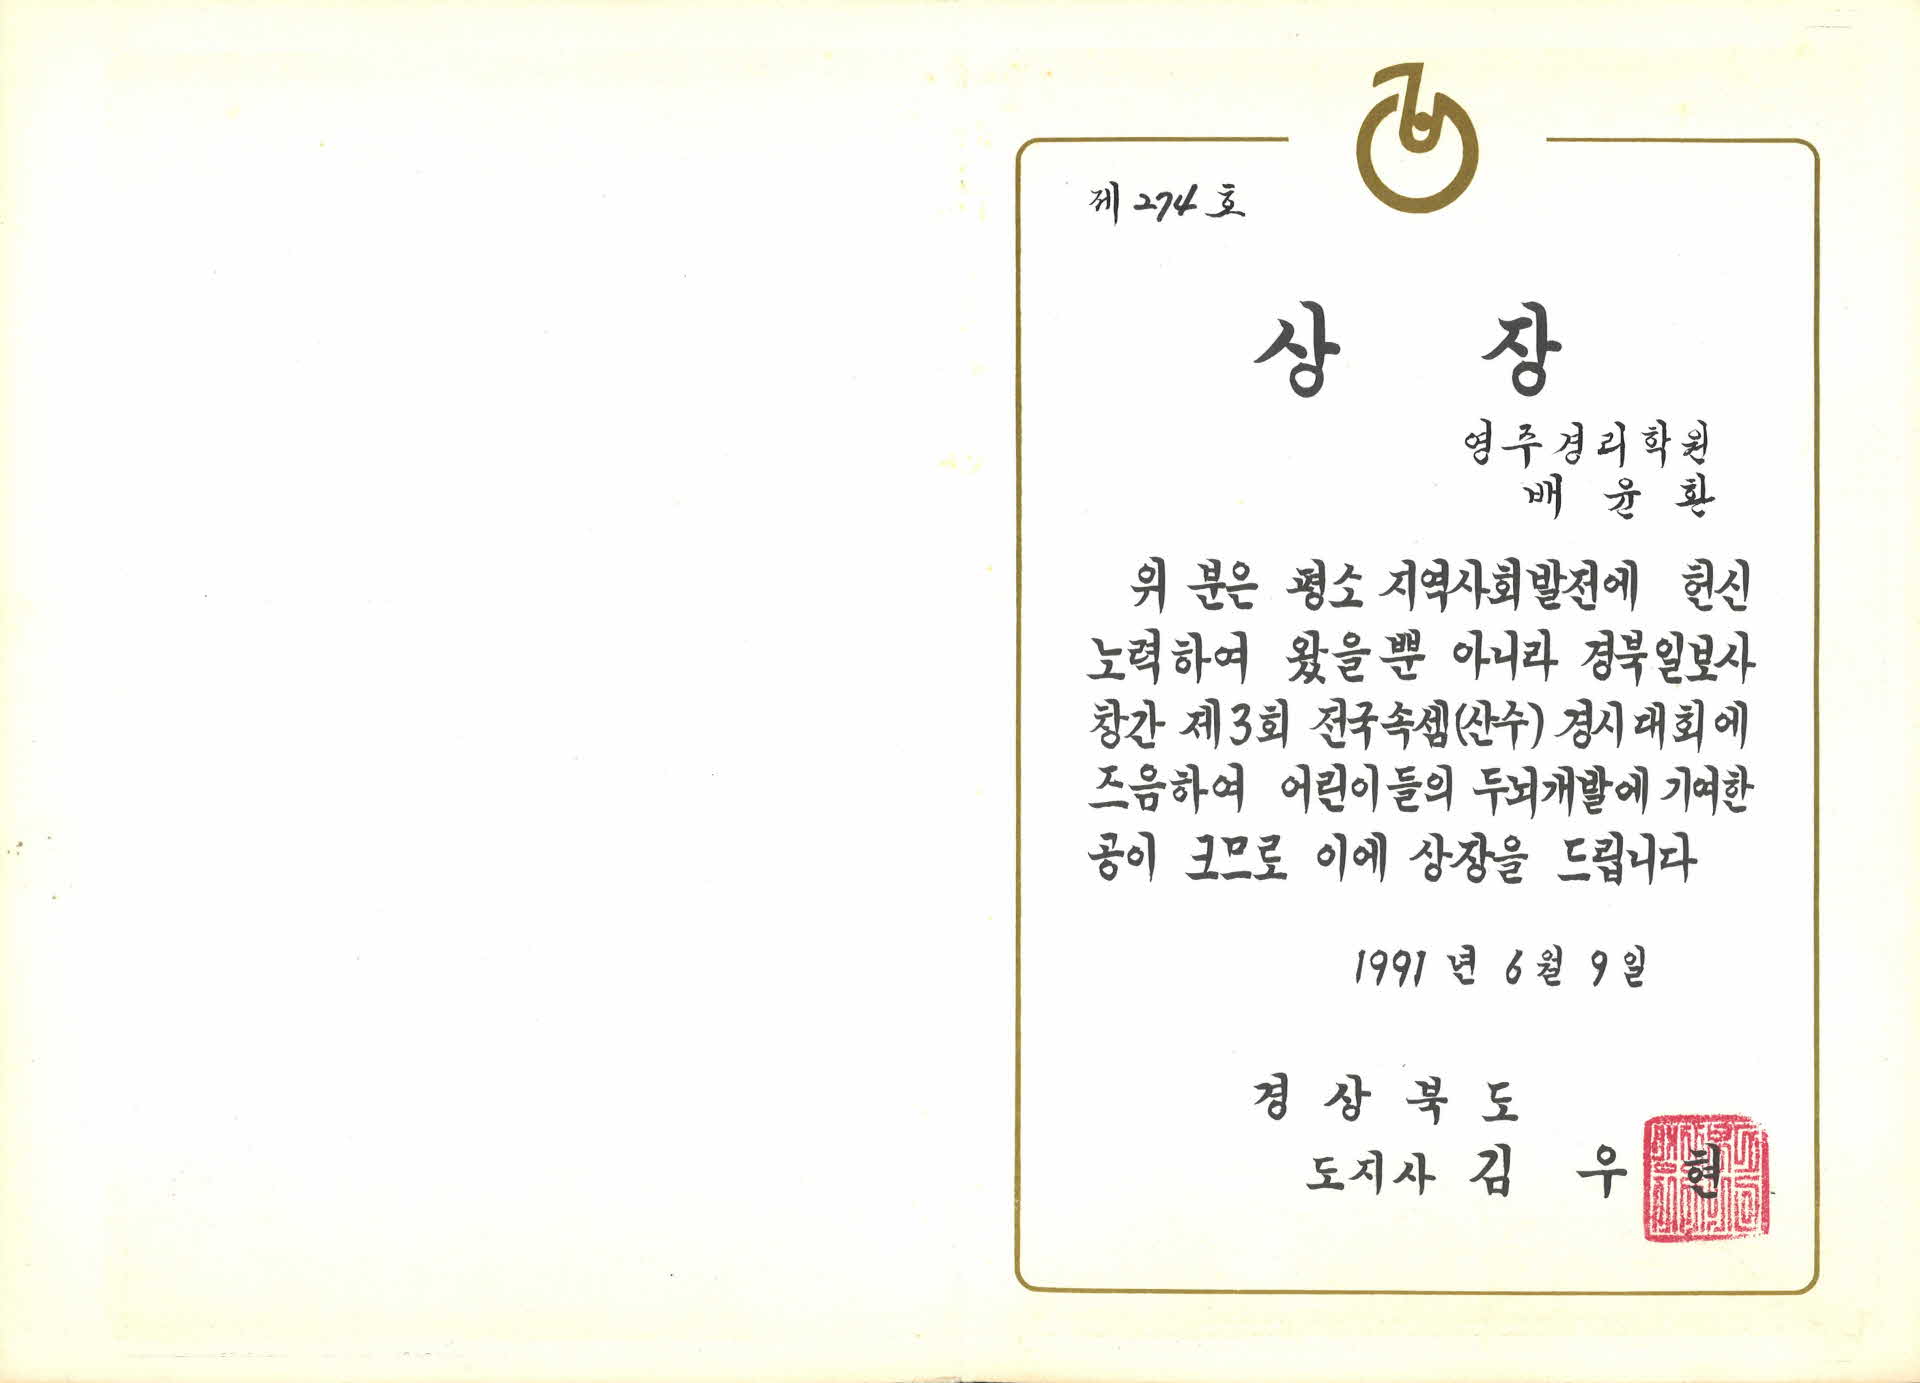 제 274 호
상 장
영주경리학원
배 윤 환
위 분은 평소 지역사회발전에 헌신
노력하여 왔을뿐 아니라 경북일보사
창간 제3회 전국속셈(산수) 경시대회에
즈음하여 어린이들의 두뇌개발에 기여한
공이 크므로 이에 상장을 드립니다
1991 년 6 월 9 일
경 상 북 도
도지사 김 우 현